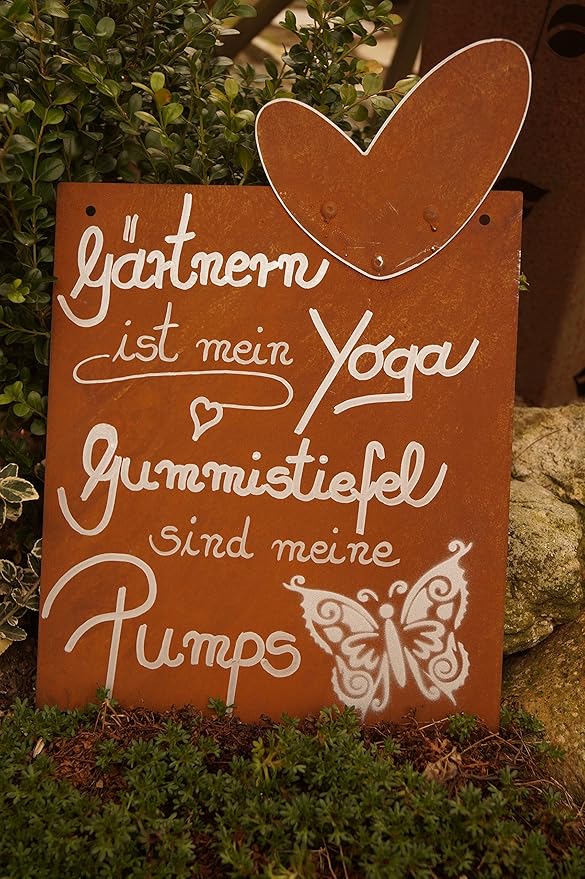 Gärtnern
ist mein Yoga
Gummistiefel
sind meine
Pumps